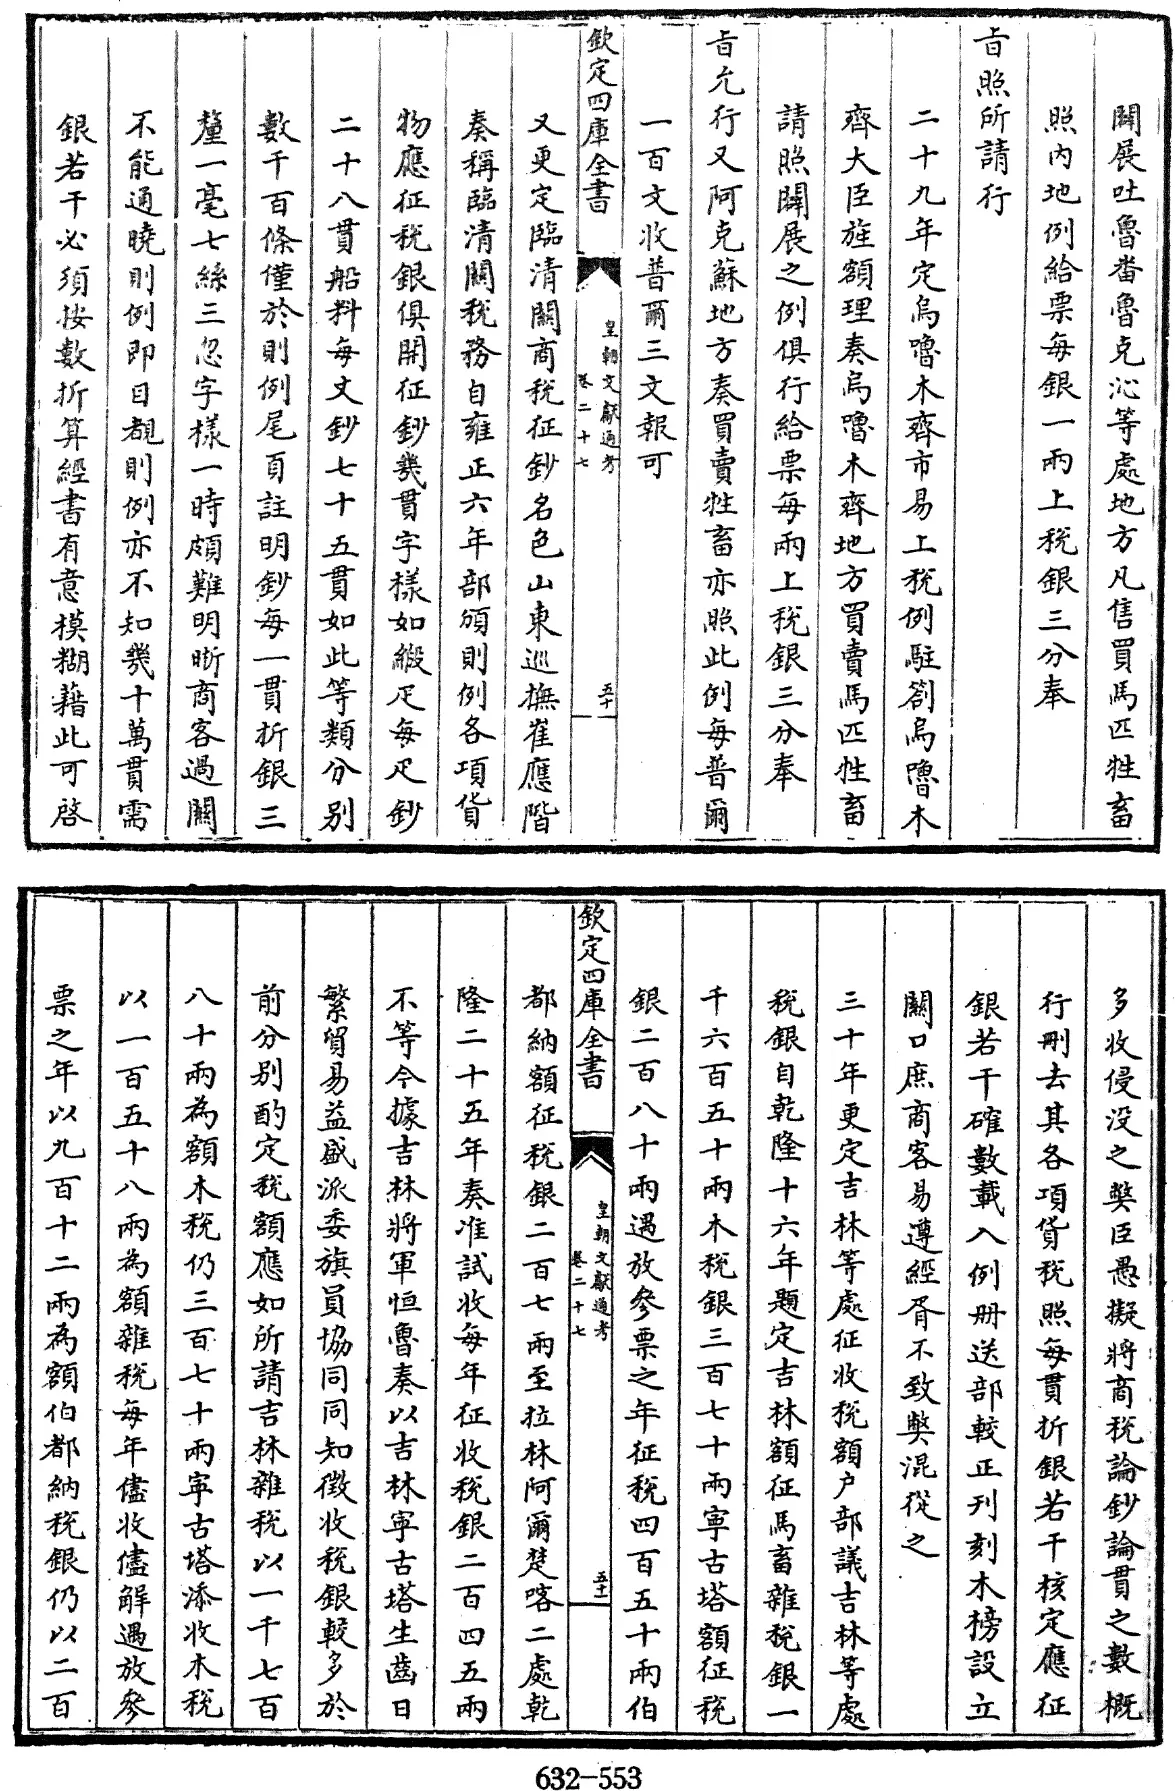 闢展吐魯畨魯克沁等處地方凡售買馬匹牲畜
照內地例給票每銀一兩上税銀三分奉
㫖照所請行
二十九年定烏嚕木齊市易上税例駐劄烏嚕木
齊大臣旌額理奏烏嚕木齊地方買賣馬匹牲畜
請照闢展之例俱行給票每兩上税銀三分奉
㫖允行又阿克蘇地方奏買賣牲畜亦照此例每普爾
一百文收普爾三文報可
欽定四庫全書
皇朝文獻通考
卷二十七
五十
又更定臨清關商税征鈔名色山東巡撫崔應階
奏稱臨清關税務自雍正六年部頒則例各項貨
物應征税銀俱開征鈔幾貫字樣如緞疋每疋鈔
二十八貫船料每丈鈔七十五貫如此等類分别
數千百條僅於則例尾頁註明鈔每一貫折銀三
釐一毫七絲三忽字樣一時頗難明晰商客過關
不能通曉則例即目覩則例亦不知幾十萬貫需
銀若干必須按數折算經書有意模糊藉此可啓
多收侵没之獘臣愚擬將商税論鈔論貫之數概
行刪去其各項貨税照每貫折銀若干核定應征
銀若干確數載入例册送部較正刋刻木榜設立
關口庶商客易遵經胥不致獘混從之
三十年更定吉林等處征收税額户部議吉林等處
税銀自乾隆十六年題定吉林額征馬畜雜税銀一
千六百五十兩木税銀三百七十兩寧古塔額征税
銀二百八十兩遇放參票之年征税四百五十兩伯
欽定四庫全書
皇朝文獻通考
卷二十七
五十一
都納額征税銀二百七兩至拉林阿爾楚喀二處乾
隆二十五年奏准試收每年征收税銀二百四五兩
不等今據吉林將軍恒魯奏以吉林寧古塔生齒日
繁貿易益盛派委旗員協同同知徵收税銀較多於
前分别酌定税額應如所請吉林雜税以一千七百
八十兩為額木税仍三百七十兩寧古塔添收木税
以一百五十八兩為額雜税每年儘收儘解遇放參
票之年以九百十二兩為額伯都納税銀仍以二百
632-553